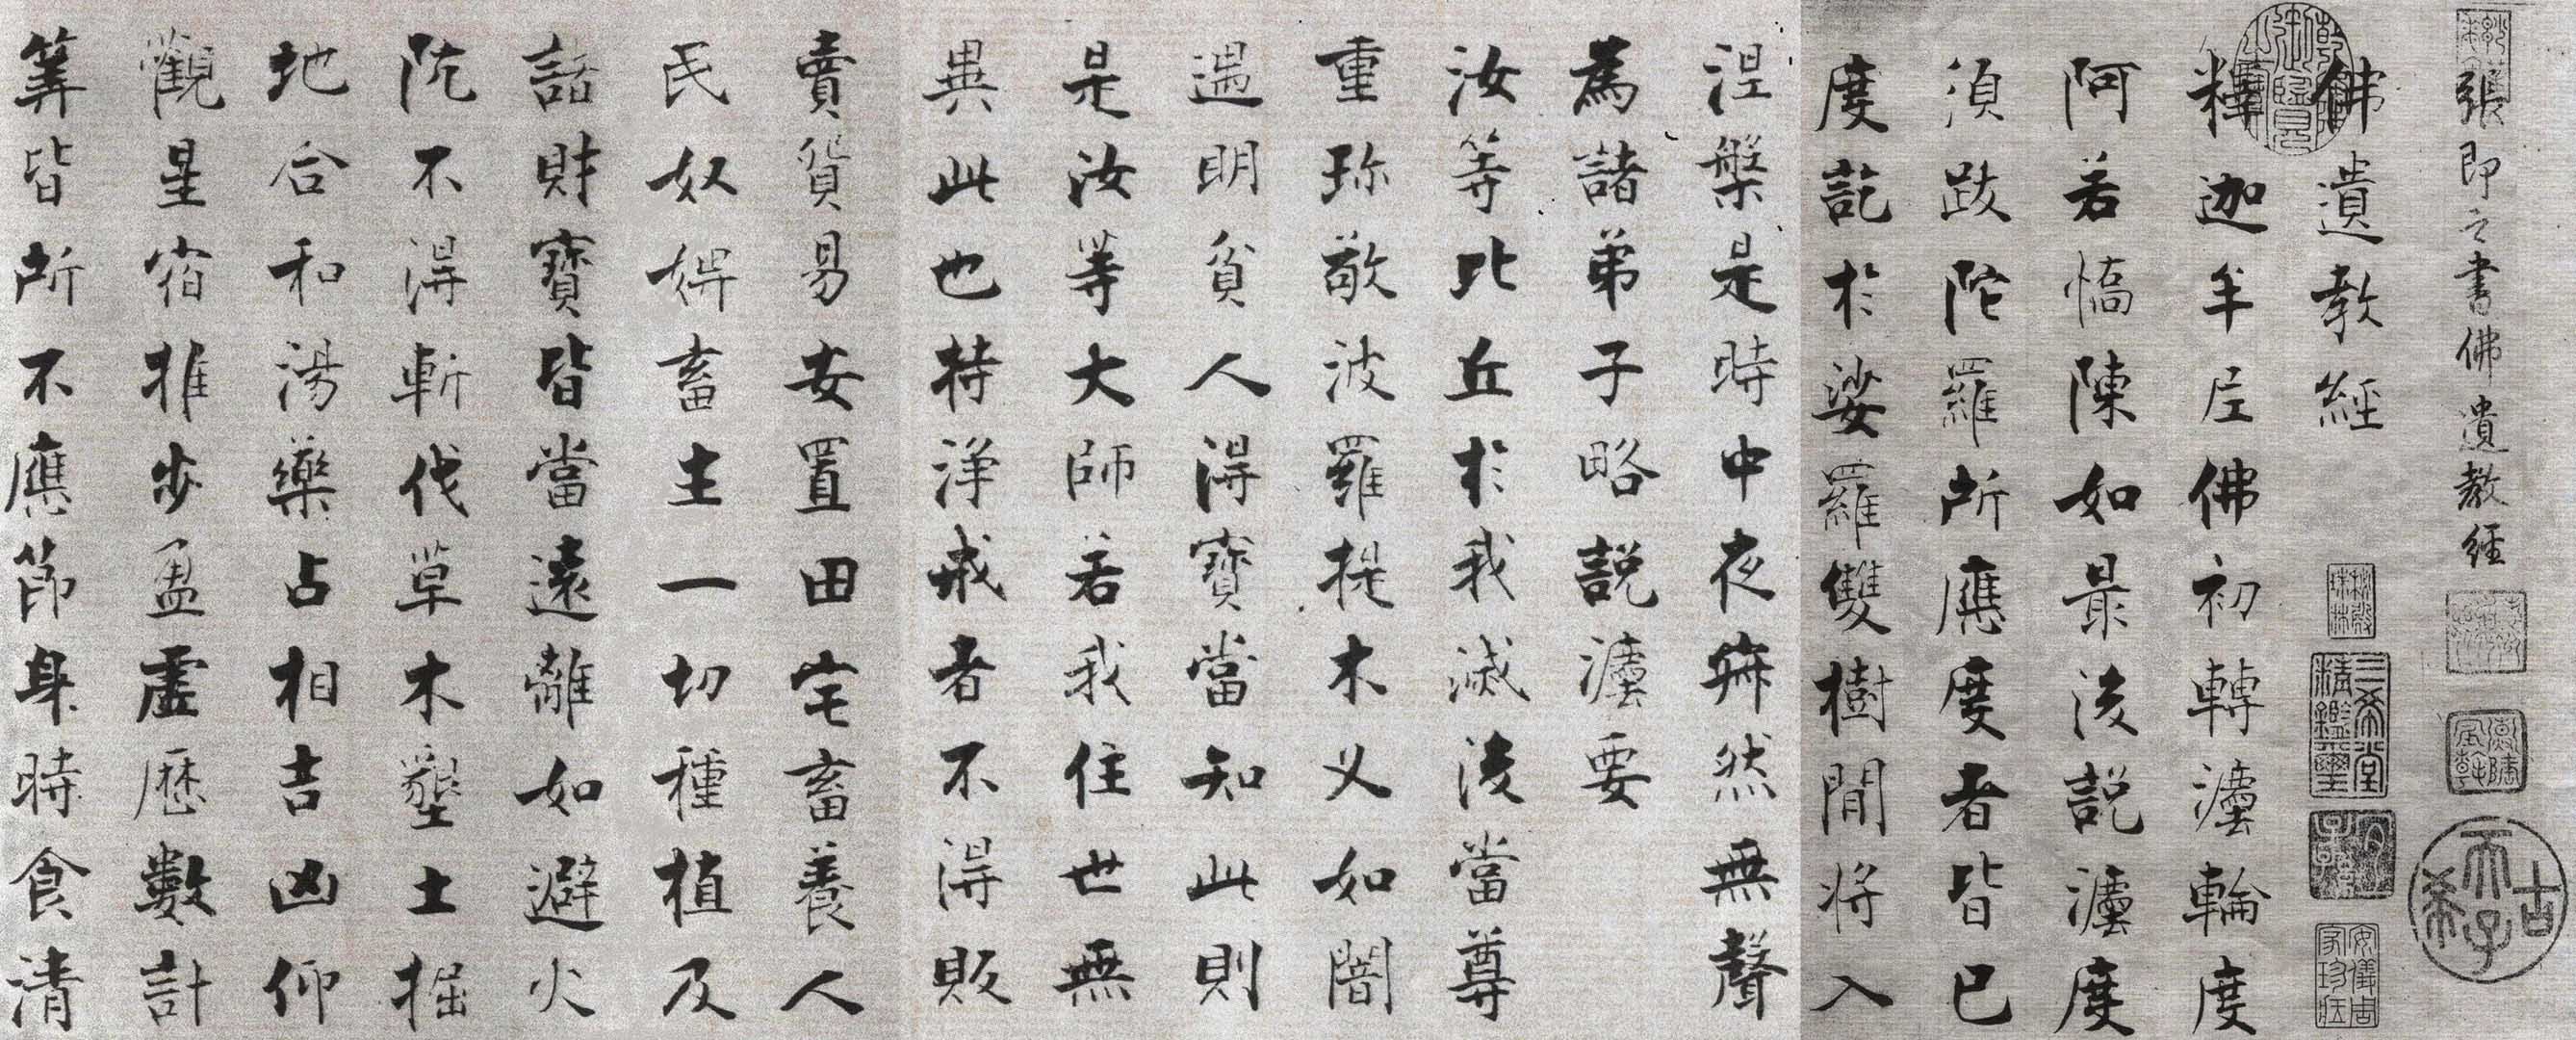 張即之書佛遺教經
佛遺教經
釋迦牟尼佛初轉灋輪度
阿若憍陳如最後說灋度
須跋陀羅所應度者皆已
度訖於娑羅雙樹閒將入
涅槃是時中夜寂然無聲
為諸弟子略說灋要
汝等比丘於我滅後當尊
重珎敬波羅提木义如闇
遇明貧人得寶當知此則
是汝等大師若我住世無
異此也持淨戒者不得販
賣貿易安置田宅畜養人
民奴婢畜生一切種植及
諸財寶皆當遠離如避火
阬不得斬伐草木墾土掘
地合和湯藥占相吉凶仰
觀星宿推步盈虛歷數計
筭皆所不應節身時食清
三希堂精鑑璽
宜子孫
古希天子
安儀周家珍藏
乾隆御覽之寶